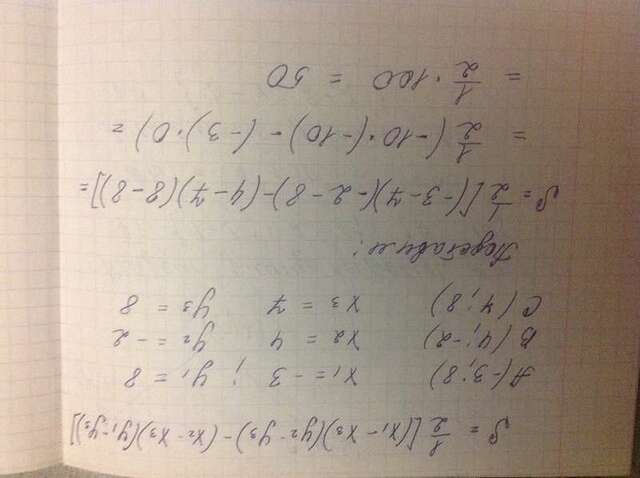 S = 1/2 [(x₁ - x₃)(y₂ - y₃) - (x₂ - x₃)(y₁ - y₃)]
A(-3; 8) x₁ = -3 ; y₁ = 8
B(4; -2) x₂ = 4 y₂ = -2
C(7; 8) x₃ = 7 y₃ = 8
Подставим:
S = 1/2 [(-3 - 7)(-2 - 8) - (4 - 7)(8 - 8)] =
= 1/2 (-10 · (-10) - (-3) · 0) =
= 1/2 · 100 = 50